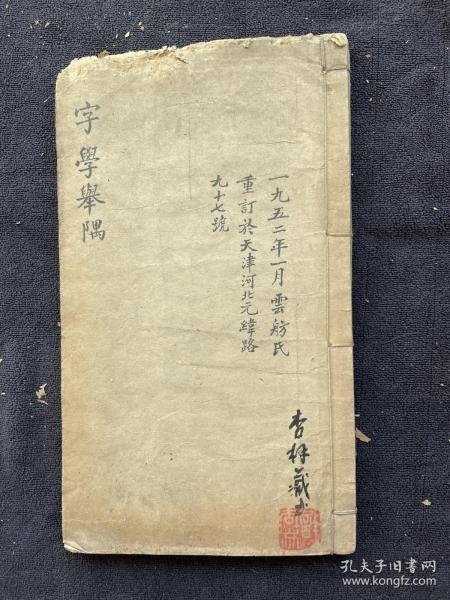 字學舉隅
一九五二年一月雲舫氏
重訂於天津河北元緯路
九十七號
杏林藏書
孔夫子旧书网
www.kongfz.com